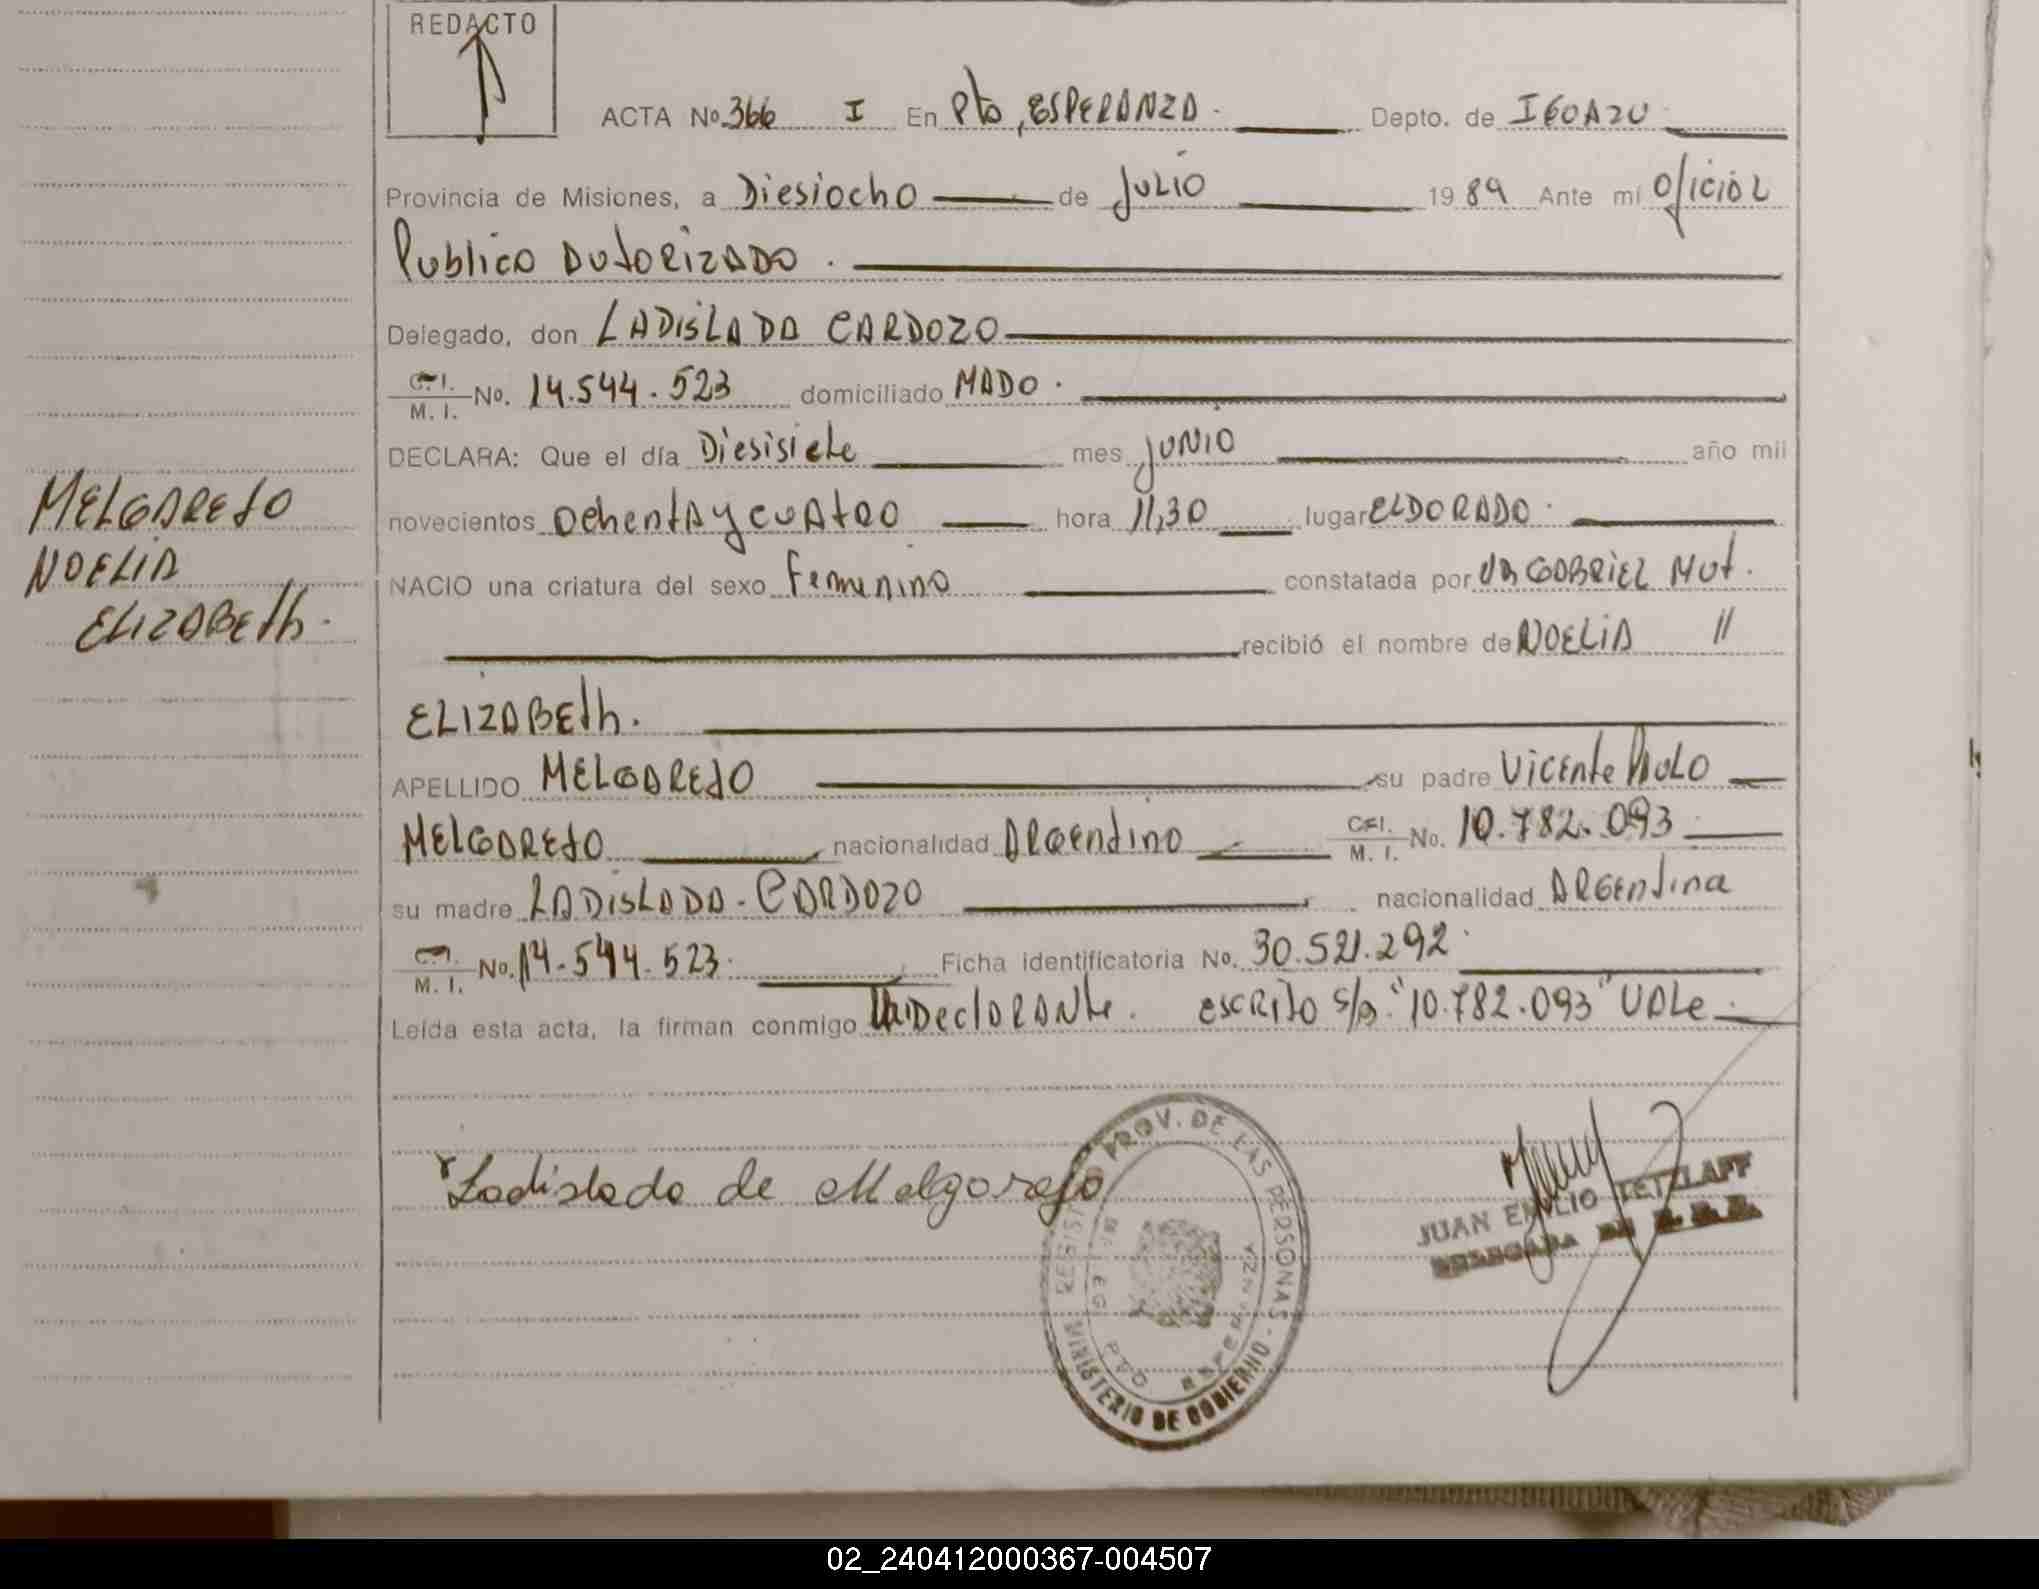 REDACTO
ACTA No. 366 I En Pto, ESPERANZA. Depto. de IGUAZU
Provincia de Misiones, a Diesiocho de JULIO 1989 Ante mí Oficial
Publico AUTORIZADO.
Delegado, don LADISLADA CARDOZO
C.I. M. I. No. 14.544.523 domiciliado MADO.
DECLARA: Que el día Diesisiete mes JUNIO año mil
novecientos OchentA y CUAtRO hora 11,30 lugar ELDORADO.
NACIO una criatura del sexo Femenino constatada por DR GABRIEL MUT.
recibió el nombre de NOELIA //
ELIZABEth.
APELLIDO MELGAREJO su padre VICENte PAULO
MELGAREJO nacionalidad ARGENtino C.I. M. I. No. 10.782.093
su madre LADISLADA - CARDOZO nacionalidad ARGENtina
C.I. M. I. No. 14.544.523. Ficha identificatoria No. 30.521.292.
Leída esta acta, la firman conmigo La DeclARANte. escRito s/b: "10.782.093" VALe.
MELGAREJO
NOELIA
ELIZABEth.
Ladislada de Melgarejo
REGISTRO PROV. DE LAS PERSONAS - MINISTERIO DE GOBIERNO
PTO ESPERANZA
JUAN EMILIO TETZLAFF
02_240412000367-004507